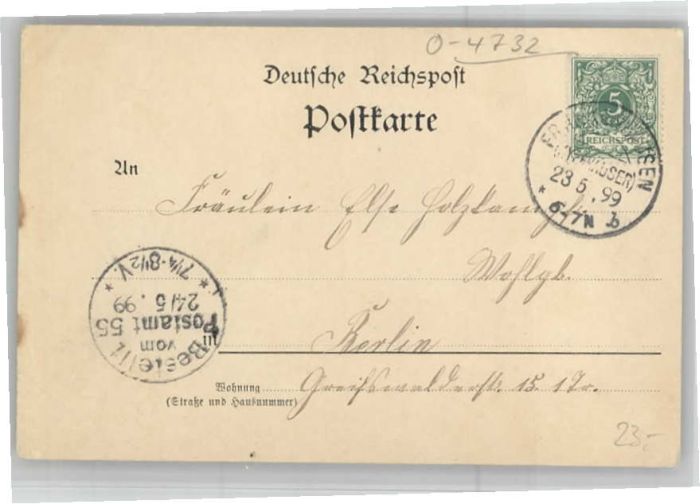 0-4732
Deutsche Reichspost
Postkarte
5
REICHSPOST
(KYFFHÄUSER)
23 5 . 99
* 6-7N b
An
Fräulein Else Holzkamp
Wohlgb.
in Berlin
Wohnung Greifswalderstr. 15. 1Tr.
(Straße und Hausnummer)
Bestellt
vom
Postamt 55
24/5 . 99
* 7¼-8½V. *
23,-